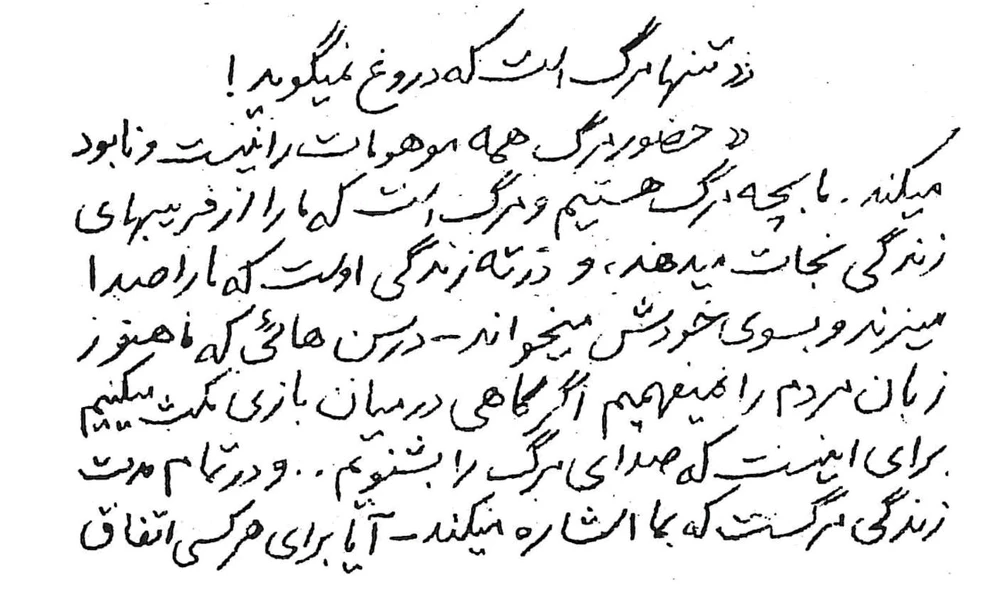 «تنها مرگ است که دروغ نمیگوید!
«حضور مرگ همه موهومات را نیست و نابود
میکند. ما بچه مرگ هستیم و مرگ است که ما را از فریبهای
زندگی نجات میدهد، و در ته زندگی اوست که ما را صدا
میزند و بسوی خودش میخواند ـ در سن هائی که ما هنوز
زبان مردم را نمیفهمیم اگر گاهی در میان بازی مکث میکنیم
برای اینست که صدای مرگ را بشنویم.. و در تمام مدت
زندگی مرگست که بما اشاره میکند ـ آیا برای هر کسی اتفاق